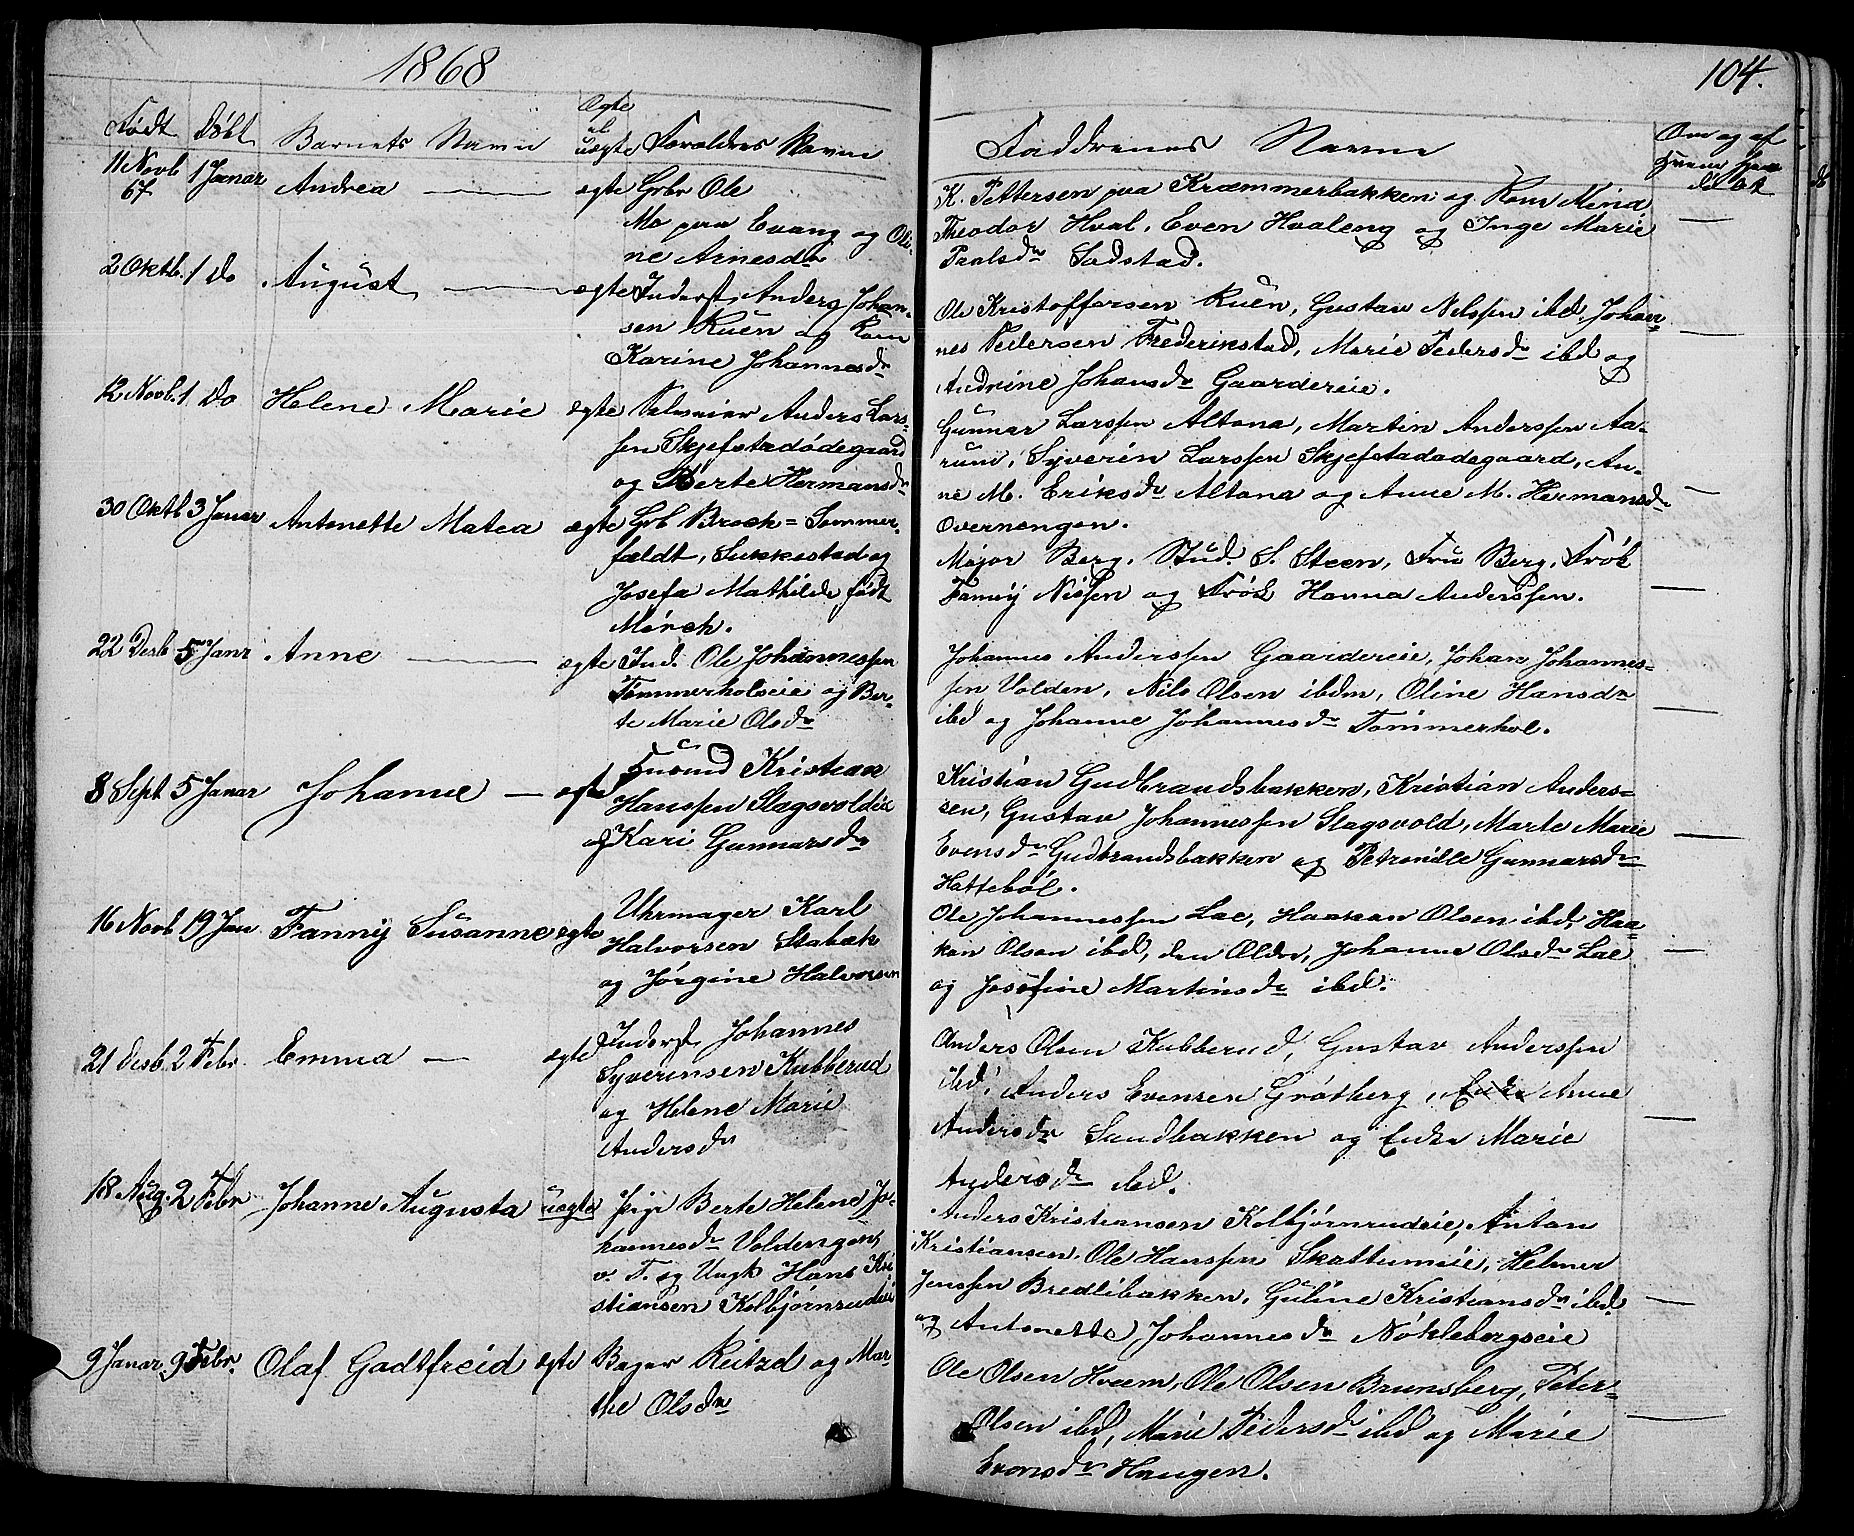 1868
Født Døbt Barnets Navn Ægte el uægte Forældres Navne
11 Novb 67 1 Janar Andrea ægte Grbr Ole
Mo paa Evang og Oli-
ne Arnesdr
2 Oktb. 1 Do August ægte Inderst, Anders Johan-
sen Ruen og Kone
Karine Johannesdr
12 Novb. 1 Do Helene Marie ægte Anders Lars-
sen Skjefstadødegaard
og Berte Hermansdr
30 Oktb 3 Janar Antonette Matea ægte Grb Brock = Sommer-
feldt, Sukkestad og
Josefa Mathilde født
Mørch.
22 Desb 5 Janr Anne ægte Ind. Ole Johannessen
Tømmerholseie og Ber-
te Marie Olsdr
8 Sept 5 Janar Johanne ægte Husmd Kristian
Hanssen Slagsvoldeie
og Kari Gunnarsdr
16 Novb 19 Jan Fanny Susanne ægte Uhrmager Karl
Halvorsen Stabæk
og Jørgine Halvorsen
21 Desb. 2 Febr. Emma ægte Inderst, Johannes
Syverinsen Kubberud
og Helene Marie
Andersdr
18 Aug. 2 Febr Johanne Augusta uægte Pige Berte Helene Jo-
hannesdr Voldengen
v. T. og Ungk Hans Kri
stiansen Kolbjørnrudeie
9 Janar 9 Febr. Olaf Gadtfreid ægte Bager Reitzel og Mar-
the Olsdr
104.
Faddrenes Navne
Om og af
Hvem Hjem
K. Pettersen paa Kræmmerbakken og Kone Mina
Theodor Hval, Even Hvaleng og Inge Marie
Paalsdr Sadstad.
Ole Kristoffersen Ruen, Gustav Nilssen ibd, Johan-
nes Pedersen Frederikstad, Marie Pedersdr ibd og
Andrine Johansdr Gaardereie.
Gunnar Larssen Altona, Martin Anderssen Aa-
rund, Syverin Larssen Skjefstadødegaard, An-
ne M. Eriksdr Altona og Anne M. Hermansdr
Overnengen.
Major Berg, Stud. S. Steen, Fru Berg, Frøk
Fanny Nissen og Frøk Hanna Anderssen.
Johannes Anderssen Gaardereie, Johan Johannes-
sen Volden, Nils Olsen ibdm, Oline Hansdr
ibd og Johanne Johannesdr Tømmerhol.
Kristian Gudbrandsbakken, Kristian Anders-
sen, Gustav Johannessen Slagsvold, Marte Marie
Evensdr Gudbrandsbakken og Petronille Gunnarsdr
Hattebøl.
Ole Johannessen Lae, Haakan Olsen ibd, Haa-
kan Olsen ibd, den Ældre, Johanne Olsdr Lae
og Josefine Martinsdr ibd.
Anders Olsen Kubberud, Gustav Anderssen
ibd, Anders Evensen Grøtberg, Anne
Andersdr Sandbakken og Enke Marie
Andersdr ibd.
Anders Kristiansen Kolbjørnrudeie, Anton
Kristiansen, Ole Hanssen Skattumeie, Helmer
Jenssen Bredlibakken, Guline Kristiansdr ibd
og Antonette Johannesdr Nøklebergseie
Ole Olsen Hveem, Ole Olsen Brunsberg, Peter
Olsen ibd, Marie Pedersdr ibd og Marie
Evensdr Haugen.